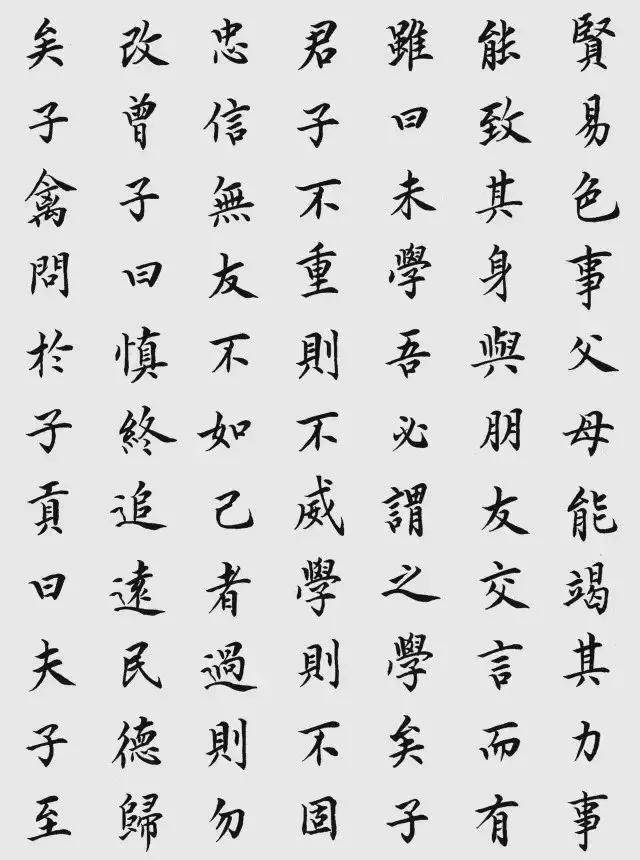 賢易色事父母能竭其力事
能致其身與朋友交言而有
雖曰未學吾必謂之學矣子
君子不重則不威學則不固
忠信無友不如己者過則勿
改曾子曰慎終追遠民德歸
矣子禽問於子貢曰夫子至